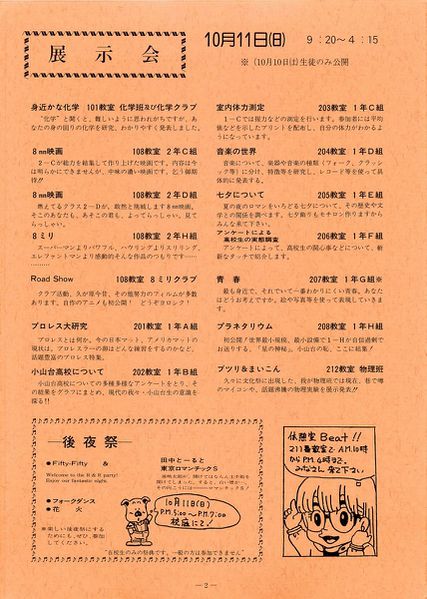 展示会
10月11日(日) 9:20～4:15
※(10月10日(土)生徒のみ公開
身近な化学 101教室 化学班及び化学クラブ
"化学"と聞くと、難しいように思われがちですが、あ
なたの身の回りの化学を研究、わかりやすく発表しました。
8mm映画 108教室 2年C組
2－Cが総力を結集して作り上げた映画です。内容は今
は明らかにできませんが、中味の濃い映画です。乞う御期
待!!
8mm映画 108教室 2年D組
燃えてるクラス2－Dが、敢然と挑戦します8mm映画。
そこのあなたも、あそこの君も、よってらっしゃい、見て
らっしゃい。
8ミリ 108教室 2年H組
スーパーマンよりパワフル、ハウリングよりスリリング、
エレファントマンより感動的そんな作品のつもりです……
Road Show 108教室 8ミリクラブ
クラブ活動、久が原今昔、その他努力のフィルムが多数
あります。自作のアニメも初公開！ どうぞヨロシク！
プロレス大研究 201教室 1年A組
プロレスとは何か。今の日本マット、アメリカマットの
現状は。プロレスラーの卵はどんな練習をするのかなど、
話題豊富のプロレス特集。
小山台高校について 202教室 1年B組
小山台高校についての多種多様なアンケートをとり、そ
の結果をグラフにまとめ、現代の我々・小山台生の意識を
探る!!
室内体力測定 203教室 1年C組
1－Cでは握力などの測定を行います。参加者には平均
値などを示したプリントを配布し、自分の体力がわかるよ
うになっています。
音楽の世界 204教室 1年D組
音楽について、楽器や音楽の種類（フォーク、クラッシ
ック等）に分け、特徴等を研究し、レコード等を使って具
体的に発表する。
七夕について 205教室 1年E組
夏の夜のロマンをいろどる七夕について、その歴史や文
学との関係を調べます。七夕飾りもモチロン作りますから
みんな来て下さい。
アンケートによる
高校生の実態調査 206教室 1年F組
アンケートによって、高校生の関心事などについて、斬
新なタッチで紹介します。
青春 207教室 1年G組※
最も身近で、それでいて一番わかりにくい青春。あなた
はどうお考えですか。絵や写真等を使って表現していきま
す。
プラネタリウム 208教室 1年H組
初公開！世界最小規模、最小設備で1－Hが自信過剰で
お送りする。「星の神秘」小山台の恥、ここに結集！
ブツリ＆まいこん 212教室 物理班
久々に文化祭に出現した、我が物理班では現在、巷で噂
のマイコンや、話題沸騰の物理実験を展示発表!!
―後夜祭―
●Fifty-Fifty &
Welcome to the R & R party!
Enjoy our fantastic night.
田中とーると
東京ロマンチックS
●フォークダンス
●花火
※楽しい後夜祭にする
ためにも、ぜひ、参加
してください。
10月11日(日)
P.M.5:00～P.M.7:00
校庭にて！
"在校生のみの祭典です。一般の方は参加できません"
休憩室 Beat!!
211番教室で A.M.10時
から P.M.4時まで。
みなさん来て下さい
―2―